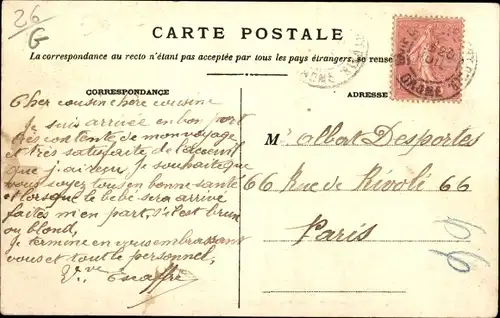 26
G
CARTE POSTALE
La correspondance au recto n'étant pas acceptée par tous les pays étrangers, se rense
CORRESPONDANCE
ADRESSE
Cher cousin chere cousine
Je suis arrivée en bon port
très contente de mon voyage
et très satisfaite de l'acceuil
que j'ai reçu, je souhaite que
vous soyez tous en bonne santé
et lorsque le bébé sera arrivé
faites m'en part, s'il est brun
ou blond,
Je termine en vous embrassant
vous et tout le personnel,
Vve
M. Albert Desportes
66 Rue de Rivoli 66
Paris
66
ORNE